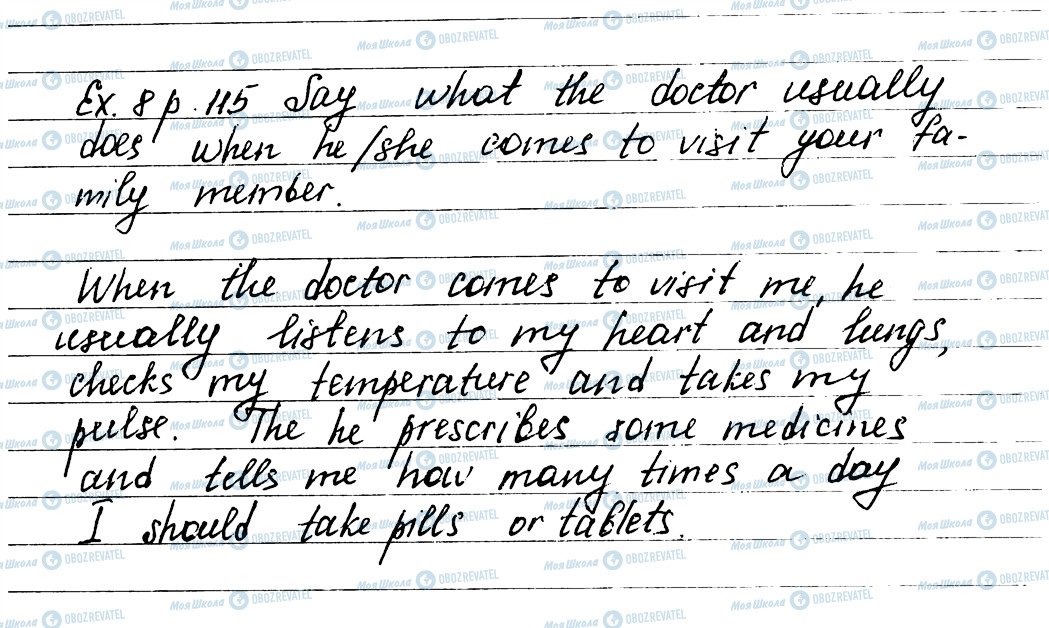 Ex. 8 p. 115 Say what the doctor usually
does when he/she comes to visit your fa-
mily member.
When the doctor comes to visit me, he
usually listens to my heart and lungs,
checks my temperature and takes my
pulse. The he prescribes some medicines
and tells me how many times a day
I should take pills or tablets.